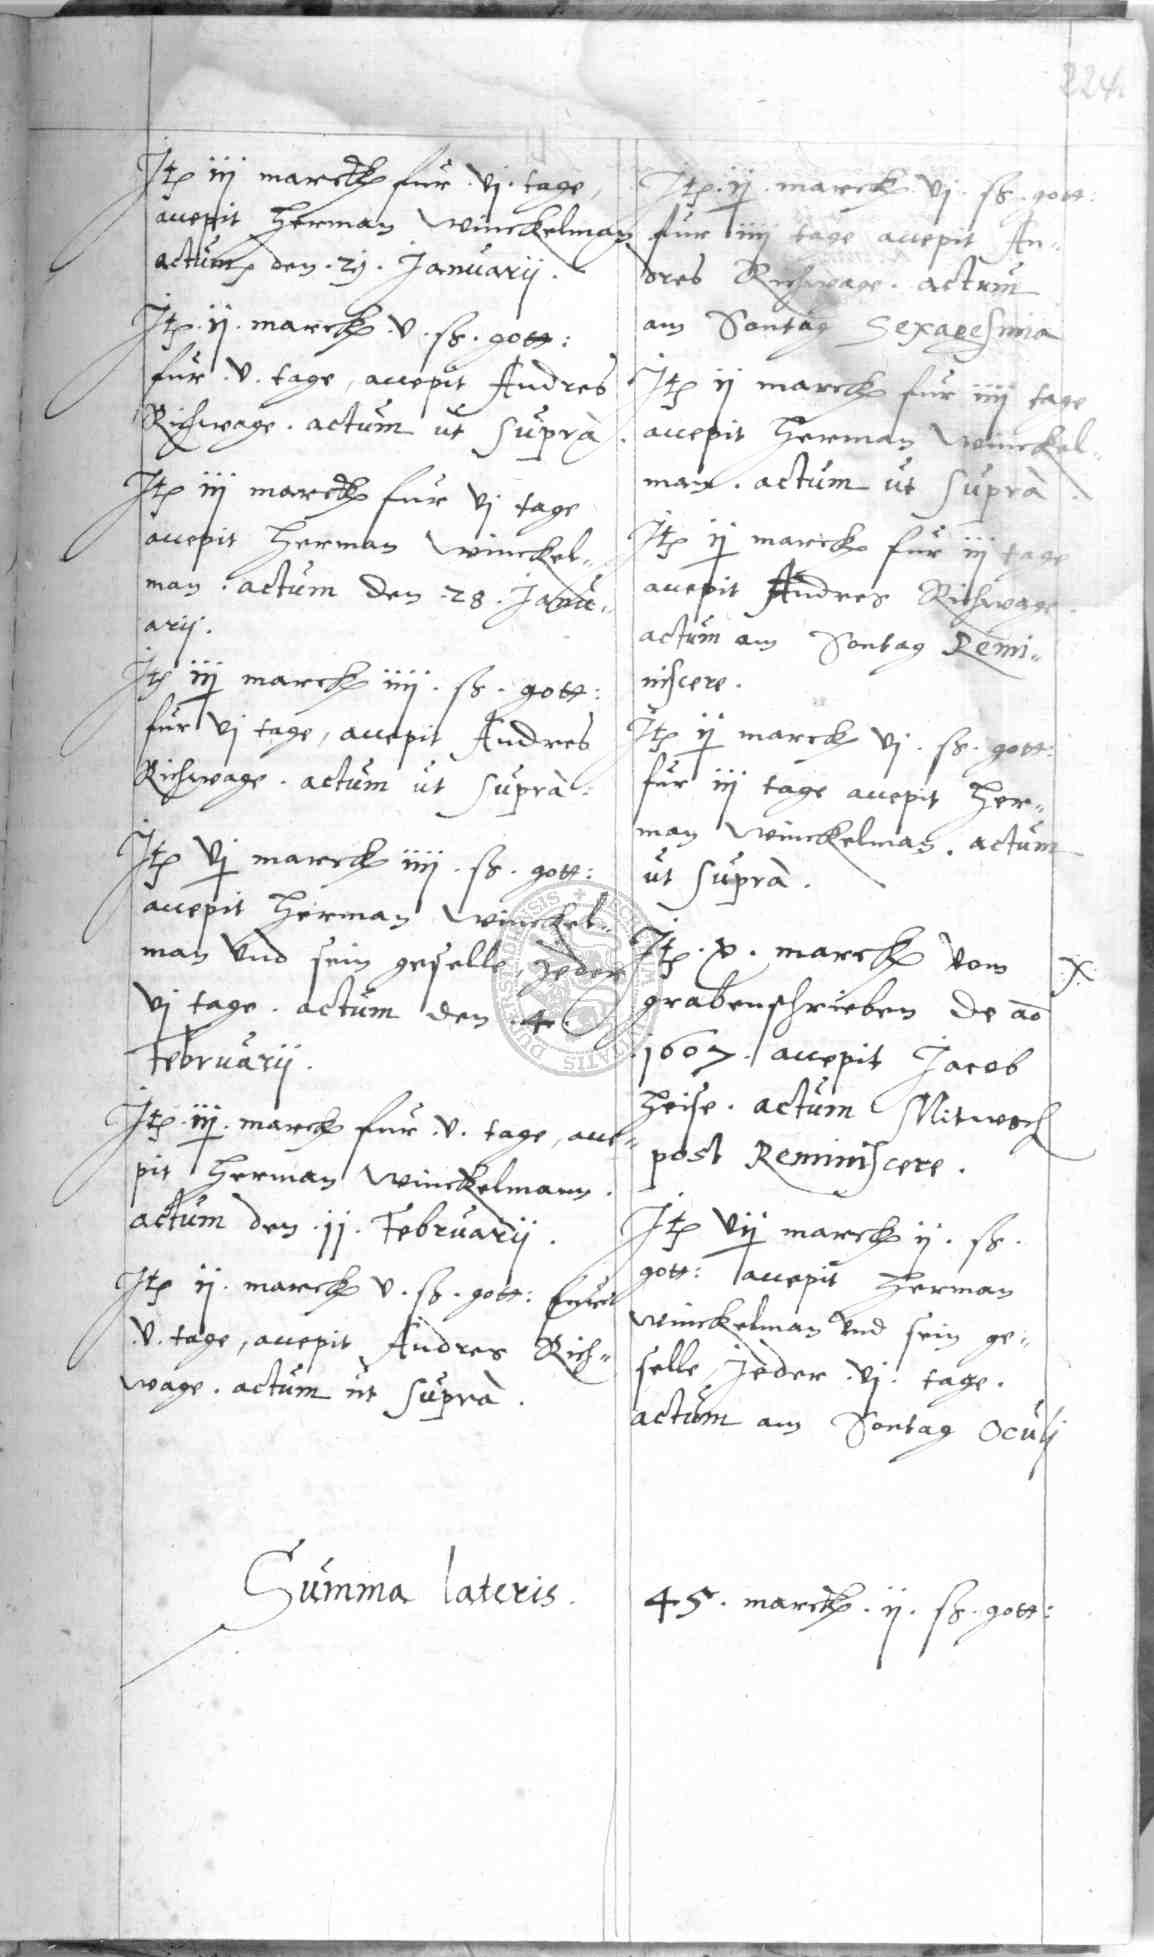 224.
Jtem iij marck fur .vj. tage,
accepit Herman Winckelman
actum den .21. Januarij.
Jtem .ij. marck .v. ß. gott:
fur .v. tage, accepit Andres
Richwage. actum ut suprà.
Jtem iij marck fur vj tage
accepit Herman Winckel„
man. actum den .28. Janu„
arij.
Jtem iij marck iiij. ß. gott:
fur vj tage, accepit Andres
Richwage. actum ut suprà:
Jtem vj marck iiij. ß. gott:
accepit Herman Winckel„
man vnd sein geselle, jeder
vj tage. actum den .4.
Februarij.
Jtem .iij. marck fur .v. tage, acce„
pit Herman Winckelmann.
actum den .11. Februarij.
Jtem ij. marck v. ß. gott: fur
.v. tage, accepit Andres Rich„
wage. actum ut suprà.
Jtem .ij. marck .vj. ß. gott:
fur iiij tage accepit An„
dres Richwage. actum
am Sontag Sexagesima
Jtem ij marck fur iiij tage
accepit Herman Winckel„
man. actum ut suprà.
Jtem ij marck fur iij tage
accepit Andres Richwage.
actum am Sontag Remi„
niscere.
Jtem ij marck vj. ß. gott:
fur iij tage accepit Her„
man Winckelman. actum
ut suprà.
Jtem .x. marck vom .X.
grabenschrieben de aō
1607. accepit Jacob
Heise. actum Mitwoch
post Reminiscere.
Jtem vij marck ij. ß.
gott: accepit Herman
Winckelman vnd sein ge„
selle, jeder .vj. tage.
actum am Sontag Oculj
Summa lateris. 45. marck .ij. ß. gott: